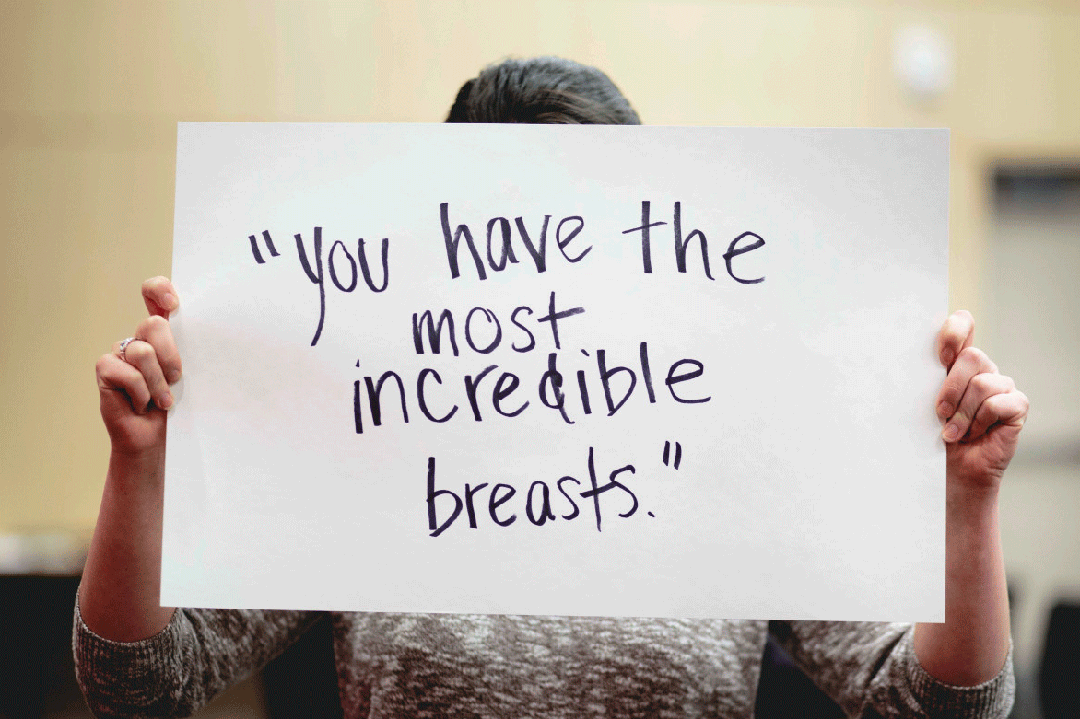 "you have the
most
incredible
breasts."